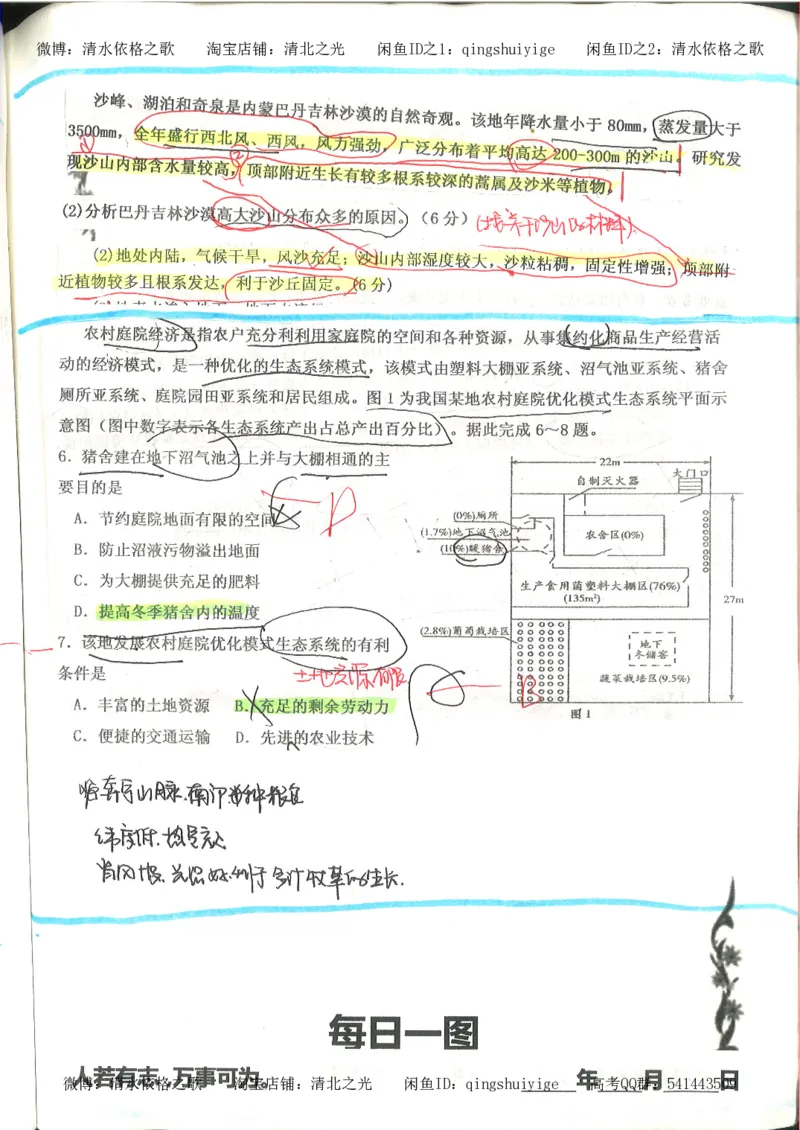 微博：清水依格之歌 淘宝店铺：清北之光 闲鱼ID之1：qingshuiyige 闲鱼ID之2：清水依格之歌
沙峰、湖泊和奇泉是内蒙巴丹吉林沙漠的自然奇观。该地年降水量小于 80mm，蒸发量大于
3500mm，全年盛行西北风、西风，风力强劲，广泛分布着平均高达 200-300m 的沙山。研究发
① ②
现沙山内部含水量较高，顶部附近生长有较多根系较深的蒿属及沙米等植物。
(2)分析巴丹吉林沙漠高大沙山分布众多的原因。（6 分）
(2)地处内陆，气候干旱，风沙充足；沙山内部湿度较大，沙粒粘稠，固定性增强；顶部附
近植物较多且根系发达，利于沙丘固定。(6 分)
农村庭院经济是指农户充分利利用家庭院的空间和各种资源，从事集约化商品生产经营活
动的经济模式，是一种优化的生态系统模式，该模式由塑料大棚亚系统、沼气池亚系统、猪舍
厕所亚系统、庭院园田亚系统和居民组成。图 1 为我国某地农村庭院优化模式生态系统平面示
意图（图中数字表示各生态系统产出占总产出百分比）。据此完成 6～8 题。
6．猪舍建在地下沼气池之上并与大棚相通的主
要目的是
A．节约庭院地面有限的空间
B．防止沼液污物溢出地面
C．为大棚提供充足的肥料
D．提高冬季猪舍内的温度
D
7．该地发展农村庭院优化模式生态系统的有利
条件是
土地资源有限
A．丰富的土地资源 B．充足的剩余劳动力
C．便捷的交通运输 D．先进的农业技术
B
22m
自制灭火器
大门口
(0%)厕所
(1.7%)地下沼气池
(10%)暖猪舍
农舍区(0%)
生产食用菌塑料大棚区(76%)
(135m²)
27m
(2.8%)葡萄栽培区
地下
冬储窖
蔬菜栽培区(9.5%)
图 1
纬度低.热量充足
每日一图
人若有志，万事可为。 年 月 日
微博：清水依格之歌 淘宝店铺：清北之光 闲鱼ID：qingshuiyige 高考QQ群：541443509